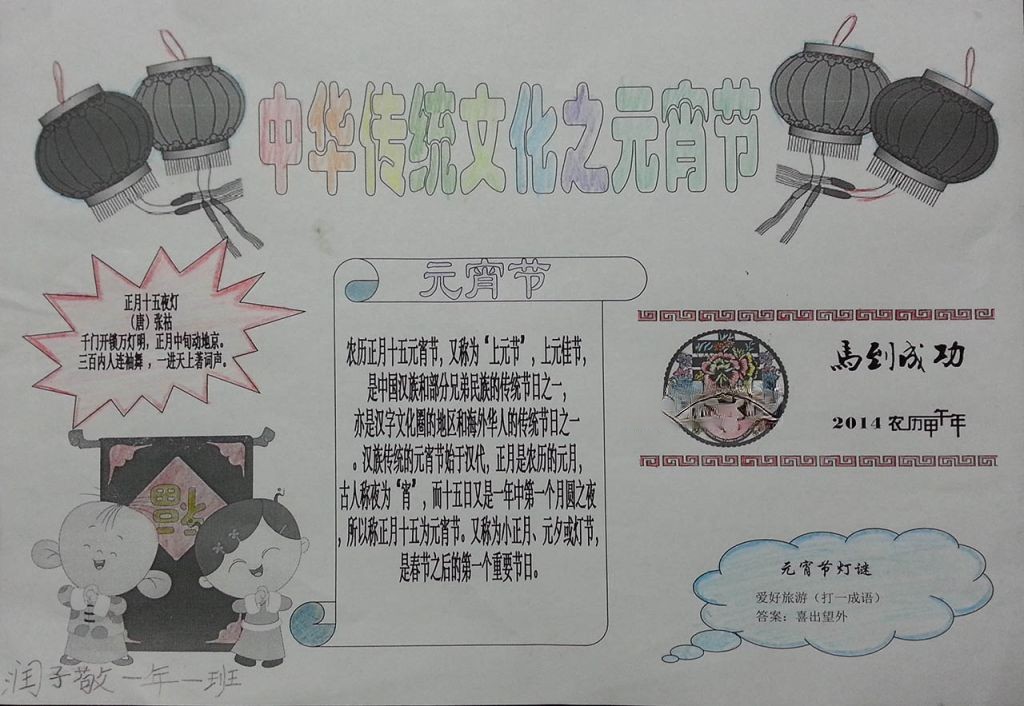 中华传统文化之元宵节
正月十五夜灯
（唐）张祜
千门开锁万灯明，正月中旬动地京。
三百内人连袖舞，一进天上著词声。
元宵节
农历正月十五元宵节，又称为“上元节”，上元佳节，
是中国汉族和部分兄弟民族的传统节日之一，
亦是汉字文化圈的地区和海外华人的传统节日之一
。汉族传统的元宵节始于汉代，正月是农历的元月，
古人称夜为“宵”，而十五日又是一年中第一个月圆之夜
，所以称正月十五为元宵节。又称为小正月、元夕或灯节，
是春节之后的第一个重要节日。
馬到成功
2014 农历甲午年
元宵节灯谜
爱好旅游（打一成语）
答案：喜出望外
福
润子敬 一年一班